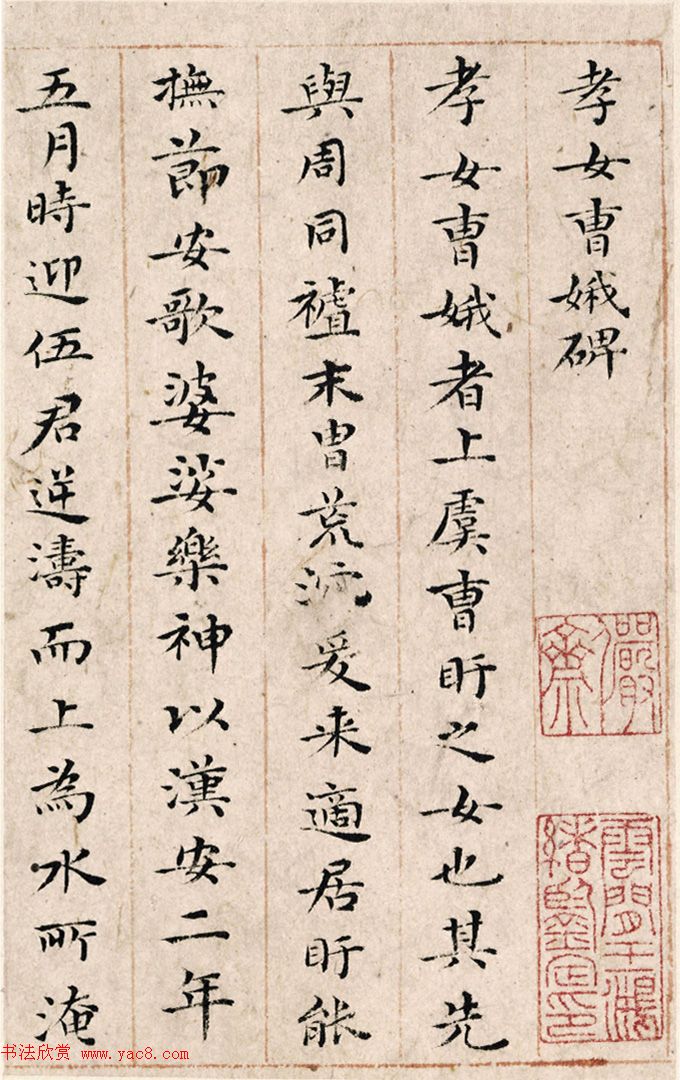 孝女曹娥碑
孝女曹娥者上虞曹盱之女也其先
與周同祖末胄荒沉爰来適居盱能
撫節安歌婆娑樂神以漢安二年
五月時迎伍君逆濤而上為水所淹
儼齋
雲間王鴻
緒鑒定印
书法欣赏 www.yac8.com